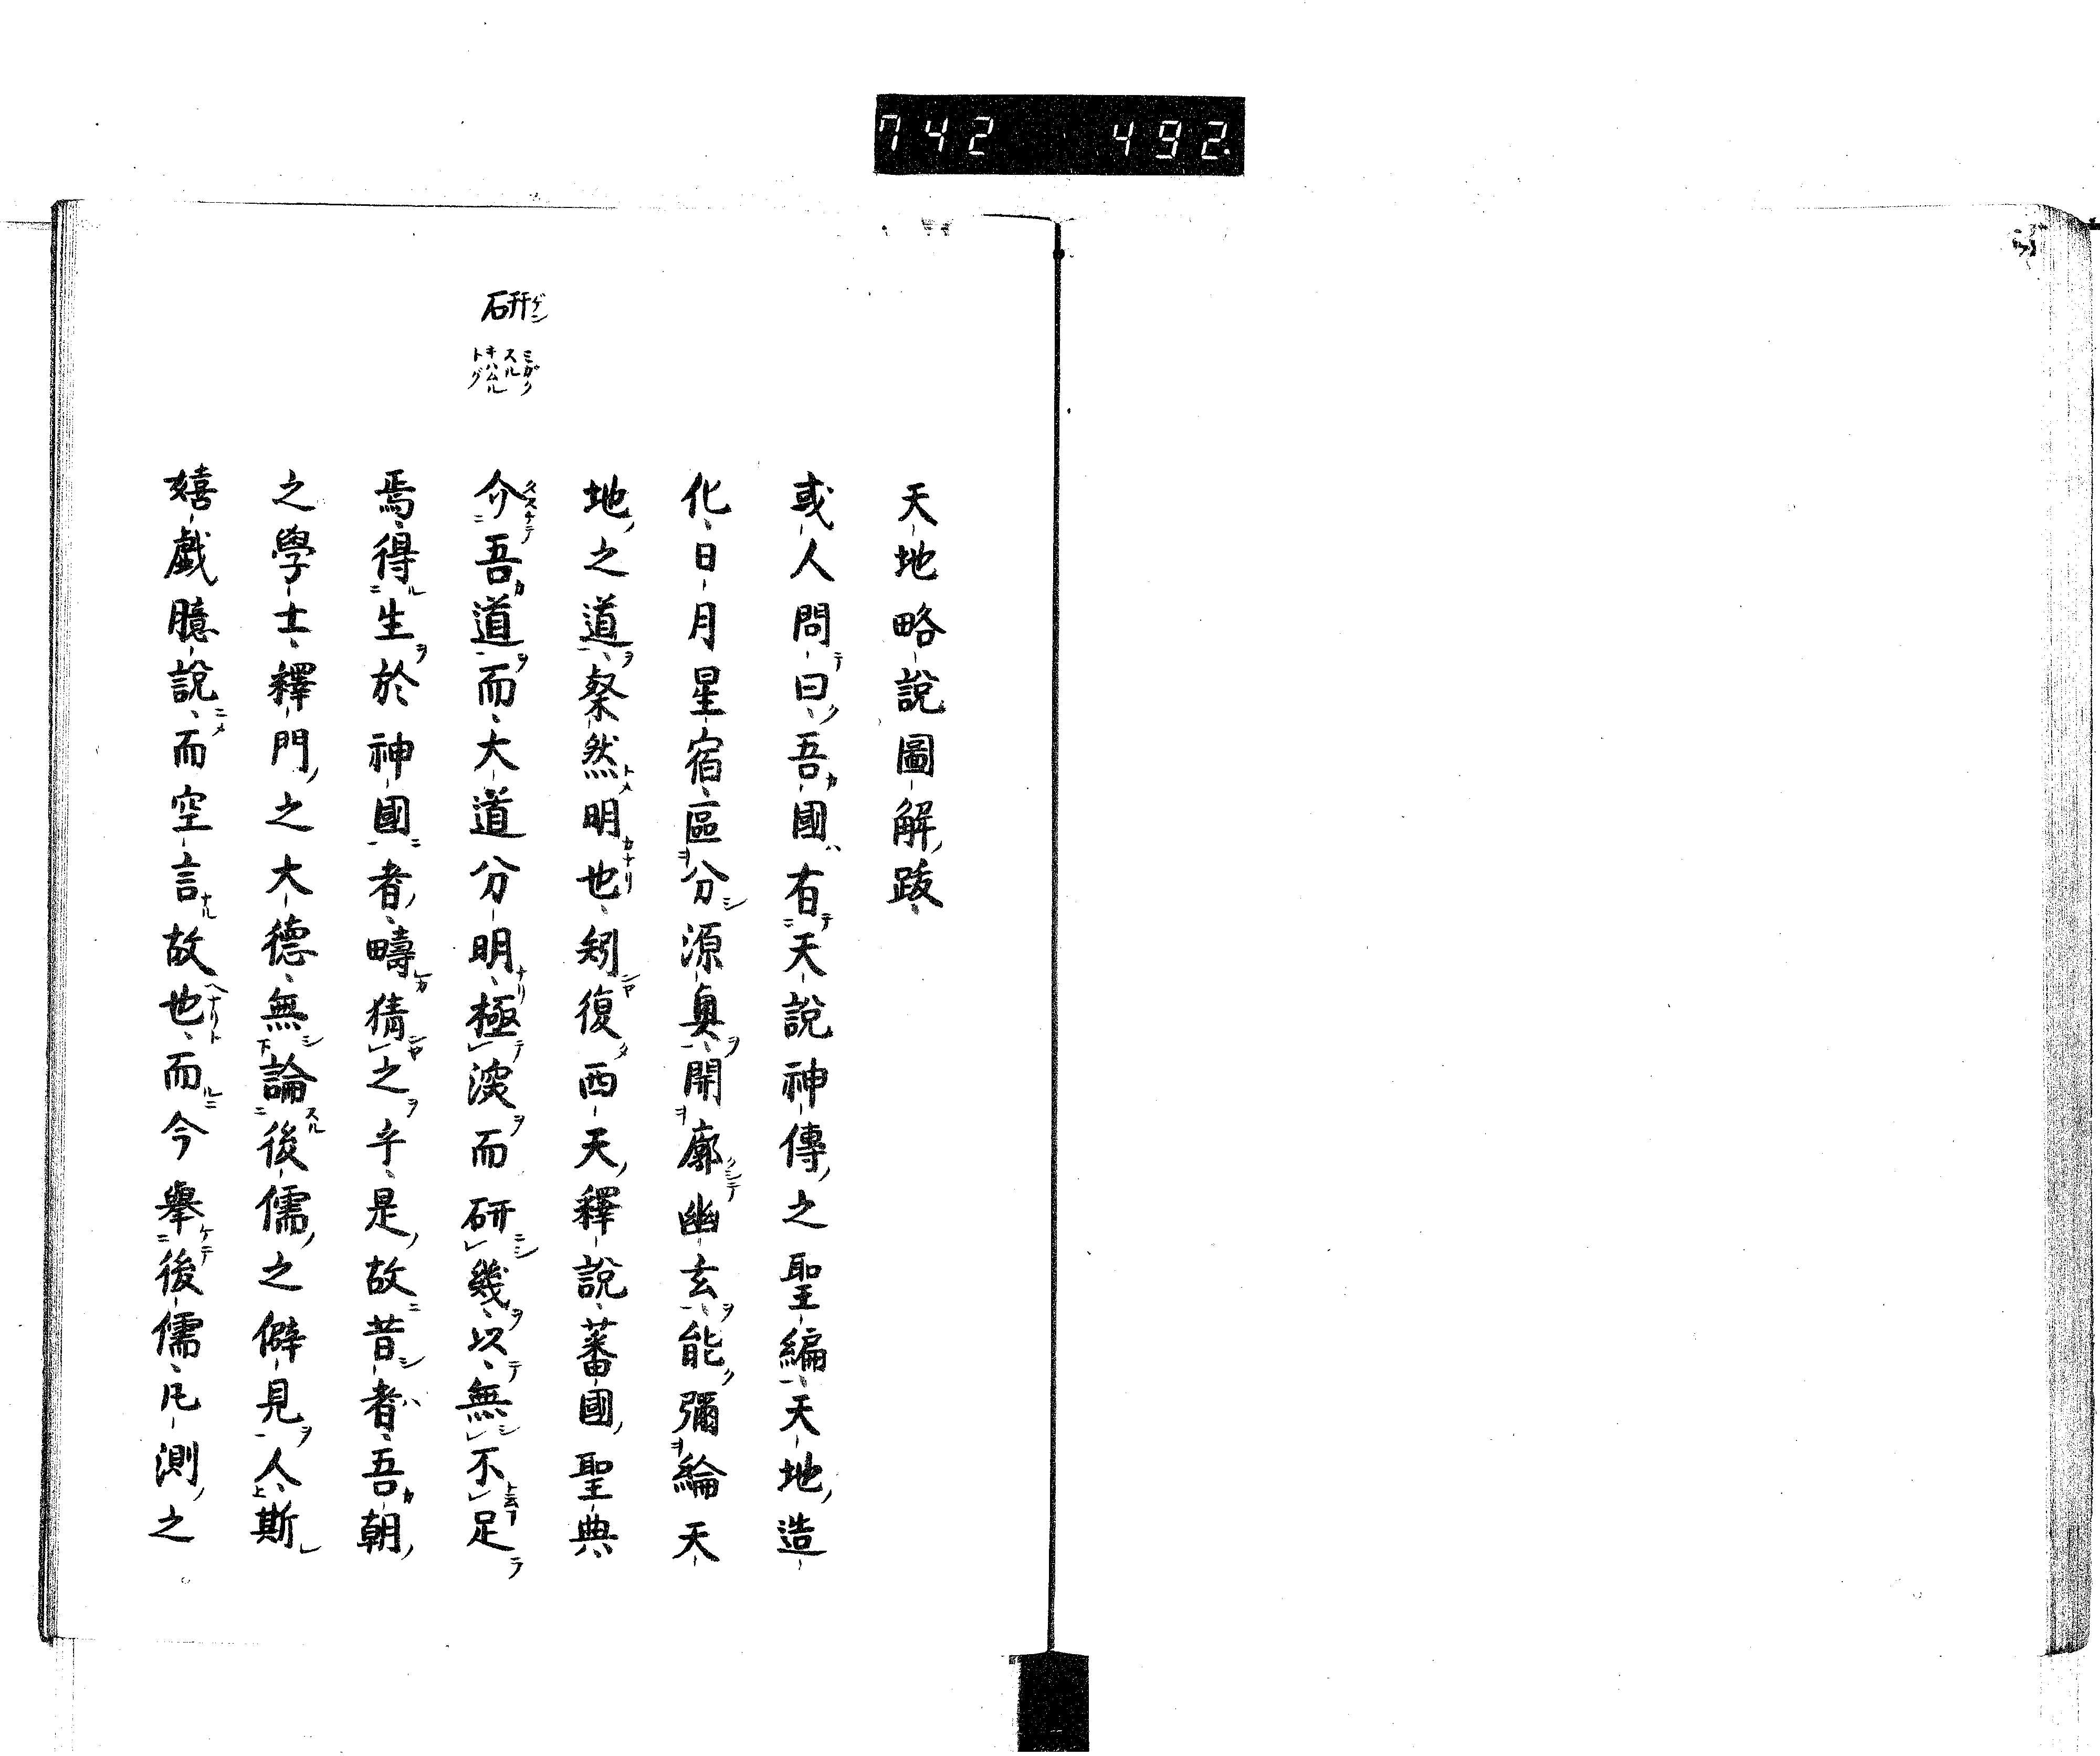 742 492
研
ゲン
ミガク
スル
キハムル
トグ
天地略說圖解跋
或人問曰吾國有天說神傳之聖編天地造
化日月星宿區分源奧開廓幽玄能彌綸天
地之道粲然明也矧復西天釋說蕃國聖典
介吾道而大道分明極深而研幾以無不足
焉得生於神國者疇猜之乎是故昔者吾朝
之學士釋門之大德無論後儒之僻見人斯
嬉戲臆說而空言故也而今舉後儒凡測之